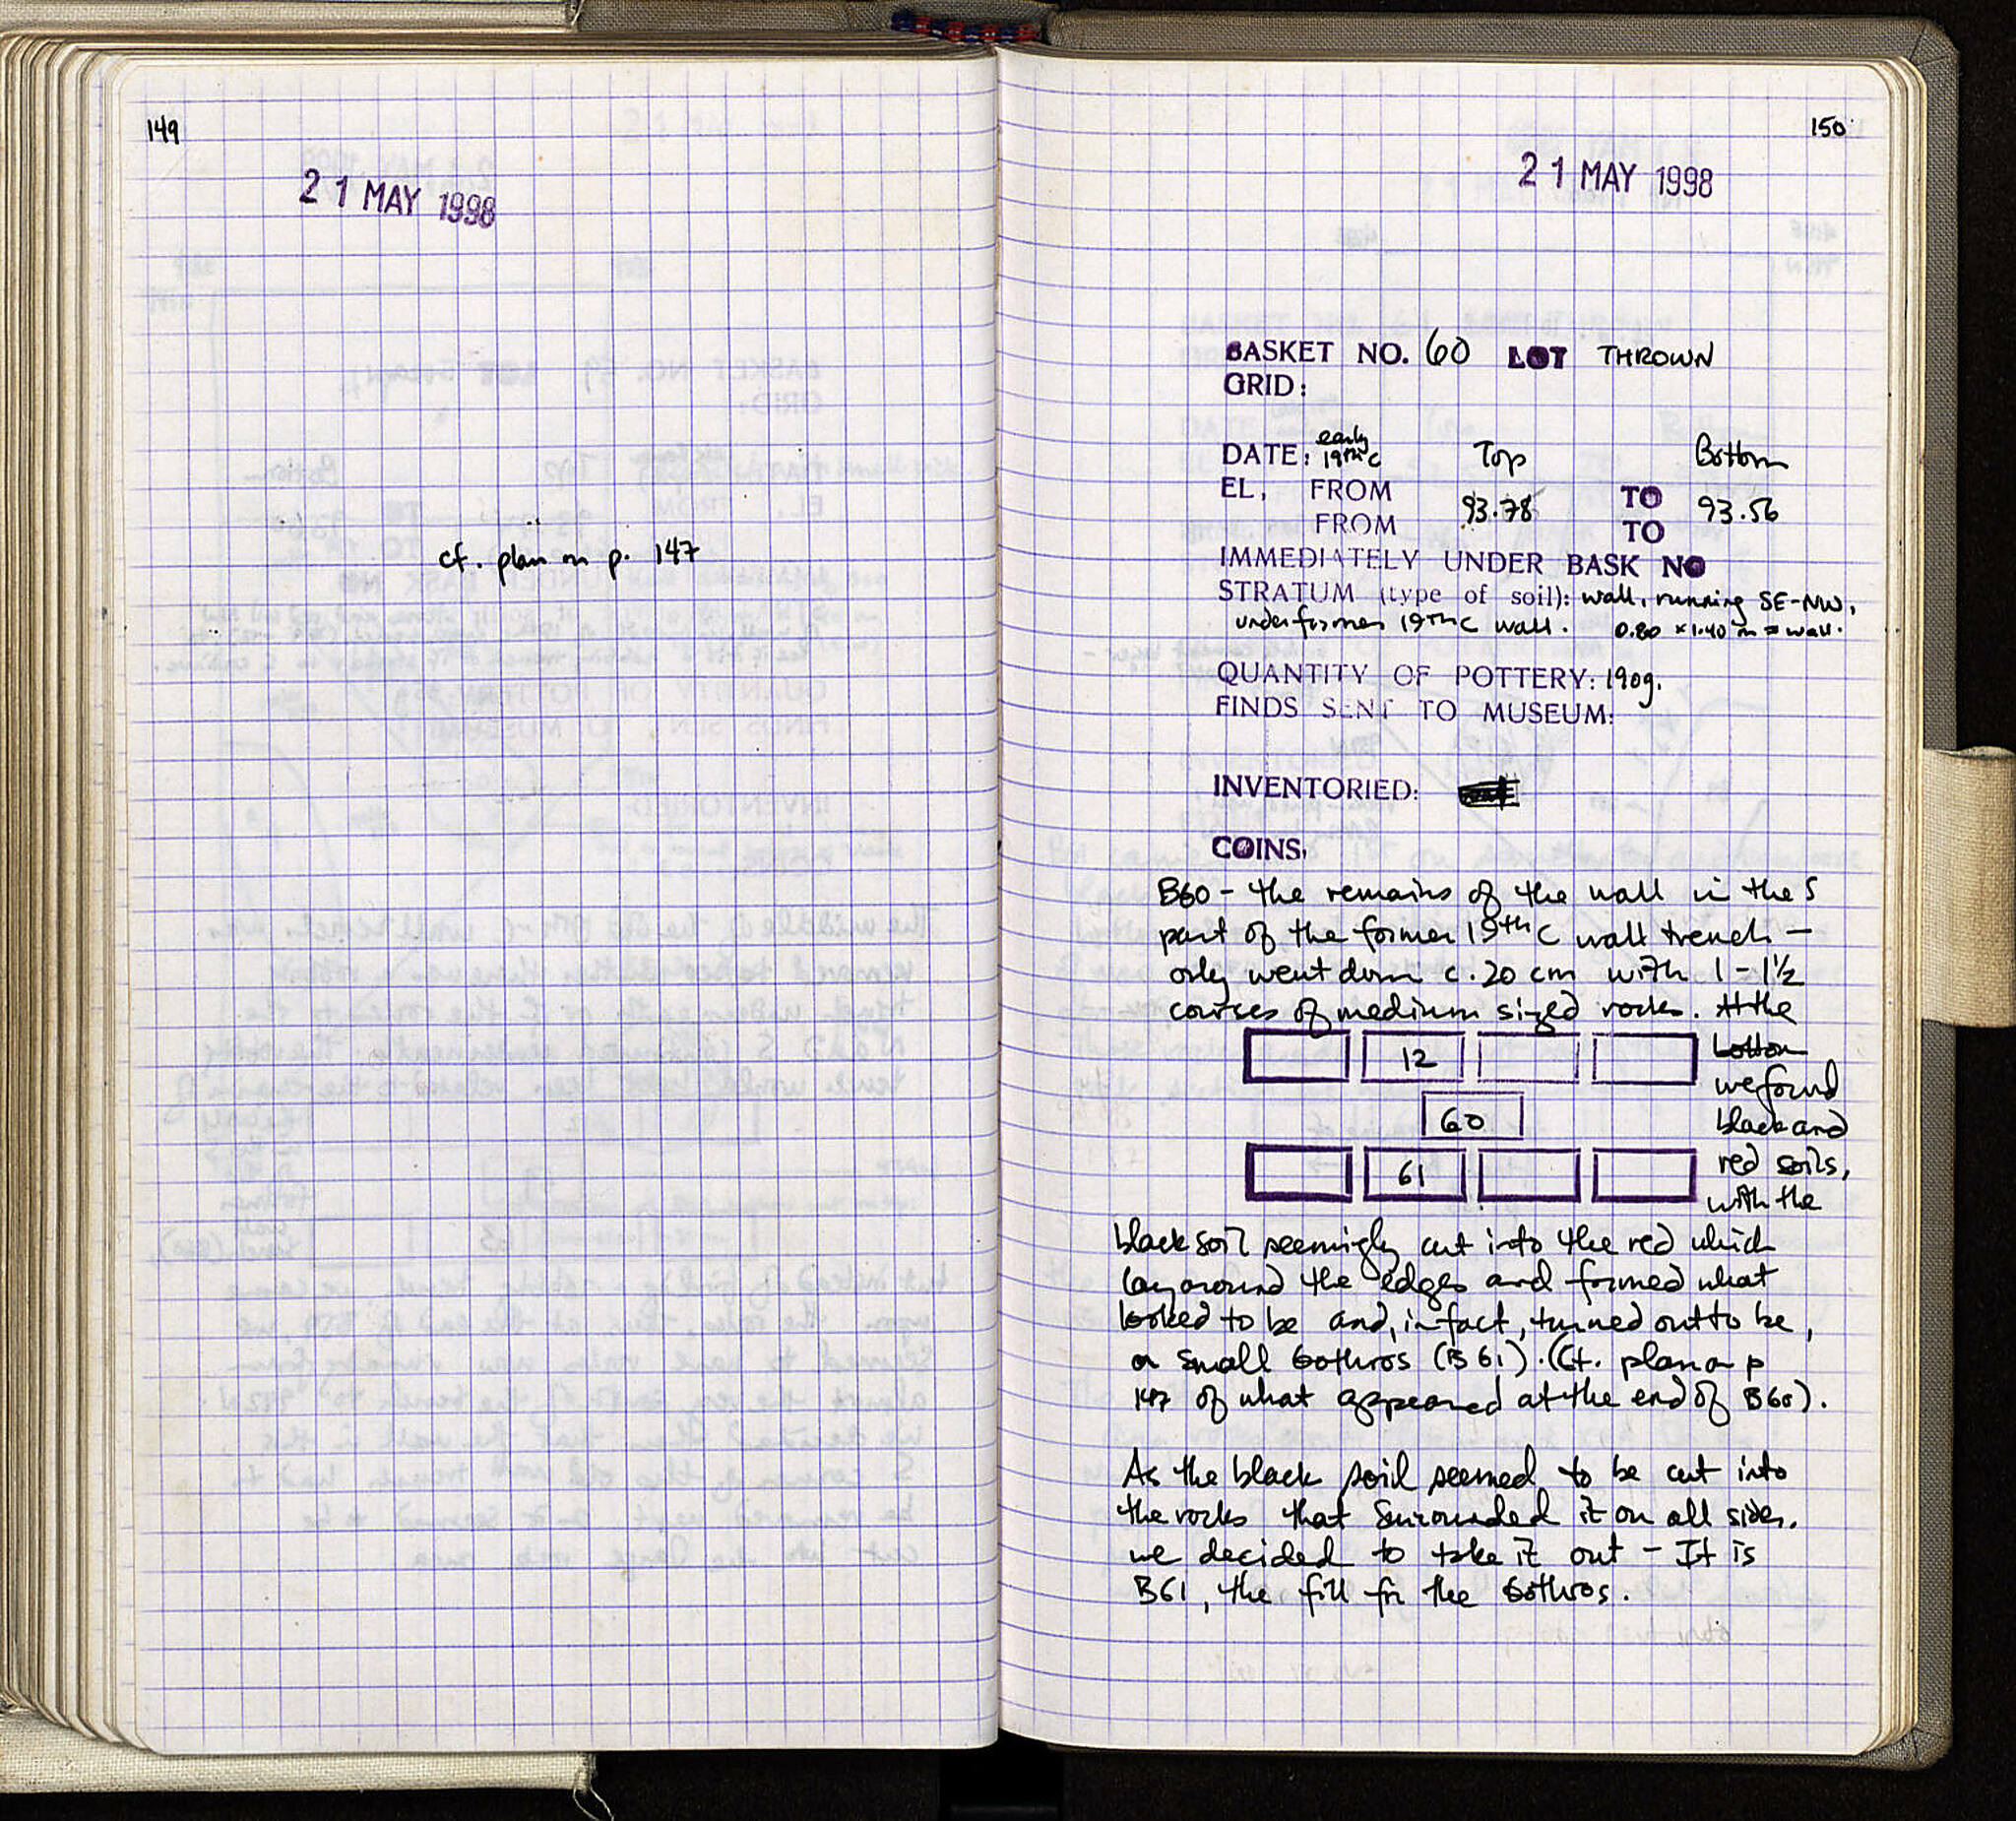 149
21 MAY 1998
cf. plan on p. 147
150
21 MAY 1998
BASKET NO. 60 LOT THROWN
GRID:
DATE: early 19th C Top Bottom
EL, FROM 93.78 TO 93.56
FROM TO
IMMEDIATELY UNDER BASK NO
STRATUM (type of soil): wall, running SE-NW,
under former 19TH C wall. 0.80 x 1.40 m = wall.
QUANTITY OF POTTERY: 190g.
FINDS SENT TO MUSEUM:
INVENTORIED:
COINS,
B60 - the remains of the wall in the S
part of the former 19th C wall trench -
only went down c. 20 cm with 1 - 1½
courses of medium sized rocks. At the
bottom
12
we found
60
black and
61
red soils,
with the
black soil seemingly cut into the red which
lay around the edges and formed what
looked to be and, in fact, turned out to be,
a small bothros (B61). (Cf. plan on p
147 of what appeared at the end of B60).
As the black soil seemed to be cut into
the rocks that surrounded it on all sides.
we decided to take it out - It is
B61, the fill for the bothros.